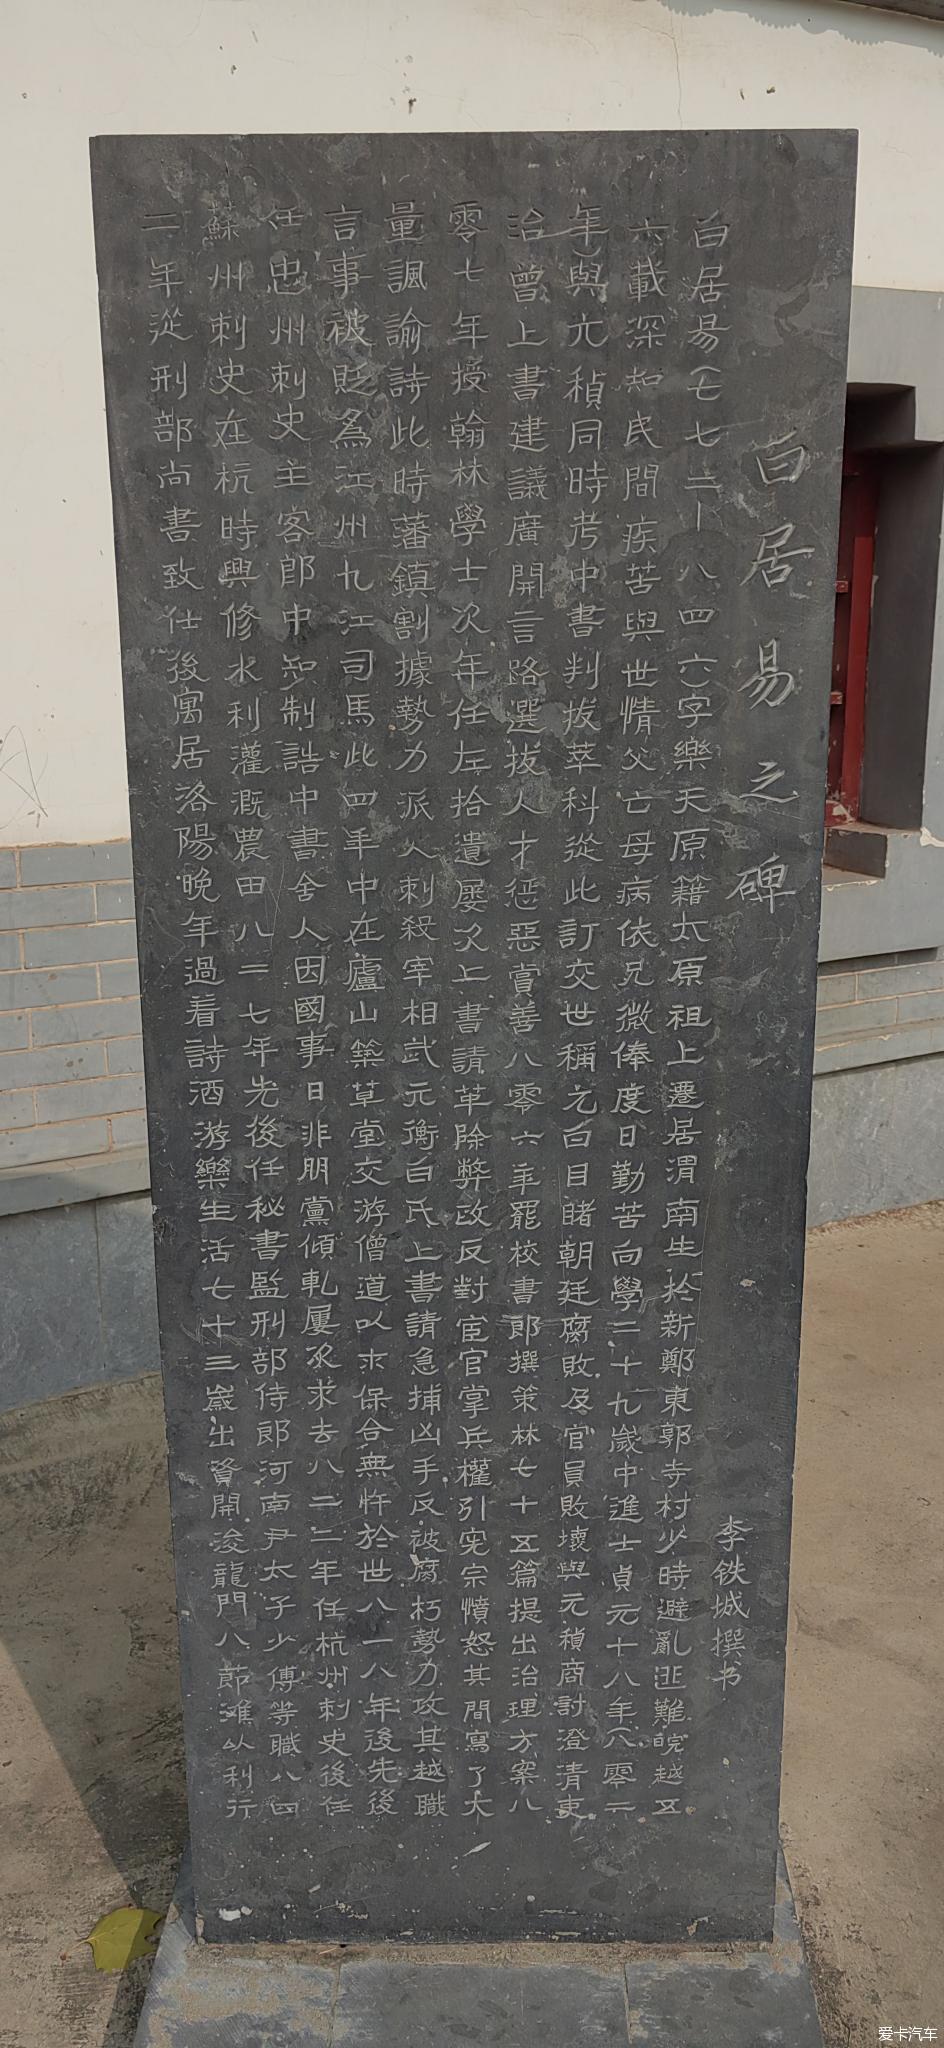 白居易之碑
李铁城撰书
白居易（七七二—八四六字樂天原籍太原祖上遷居渭南生於新鄭東郭寺村少時避亂逃難皖越五
六載深知民間疾苦與世情父亡母病依兄微俸度日勤苦向學二十九歲中進士貞元十八年（八零二
年）與元稹同時考中書判拔萃科從此訂交世稱元白目睹朝廷腐敗及官員敗壞與元稹商討澄清吏
治曾上書建議廣開言路選拔人才惩惡賞善八零六年罷校書郎撰策林七十五篇提出治理方案八
零七年授翰林學士次年任左拾遺屡次上書請革除弊政反對宦官掌兵權引宪宗憤怒其間寫了大
量諷諭詩此時藩鎮割據勢力派人刺殺宰相武元衡白氏上書請急捕凶手反被腐朽勢力攻其越職
言事被貶為江州九江司馬此四年中在廬山築草堂交游僧道以求保合無忤於世八一八年後先後
任忠州刺史主客郎中知制誥中書舍人因國事日非朋黨傾軋屢次求去八二二年任杭州刺史後任
蘇州刺史在杭時興修水利灌溉農田八二七年先後任秘書監刑部侍郎河南尹太子少傅等職八四
二年從刑部尚書致仕後寓居洛陽晚年過着詩酒游樂生活七十三歲出資開浚龍門八節滩以利行
爱卡汽车